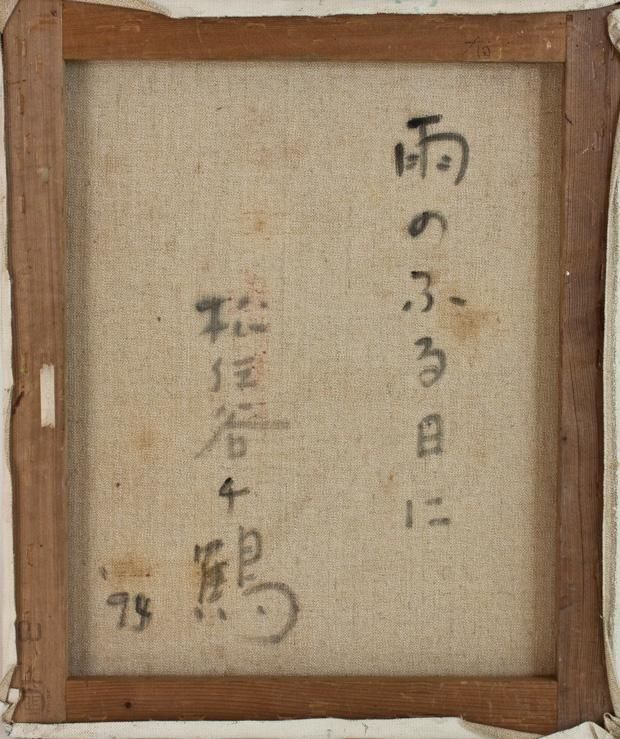 雨のふる日に
松任谷千鶴
'94